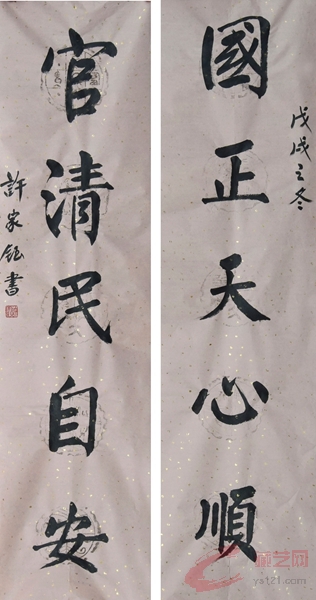 戊戌之冬
國正天心順
官清民自安
許家鈺書
艺网
ys121.com